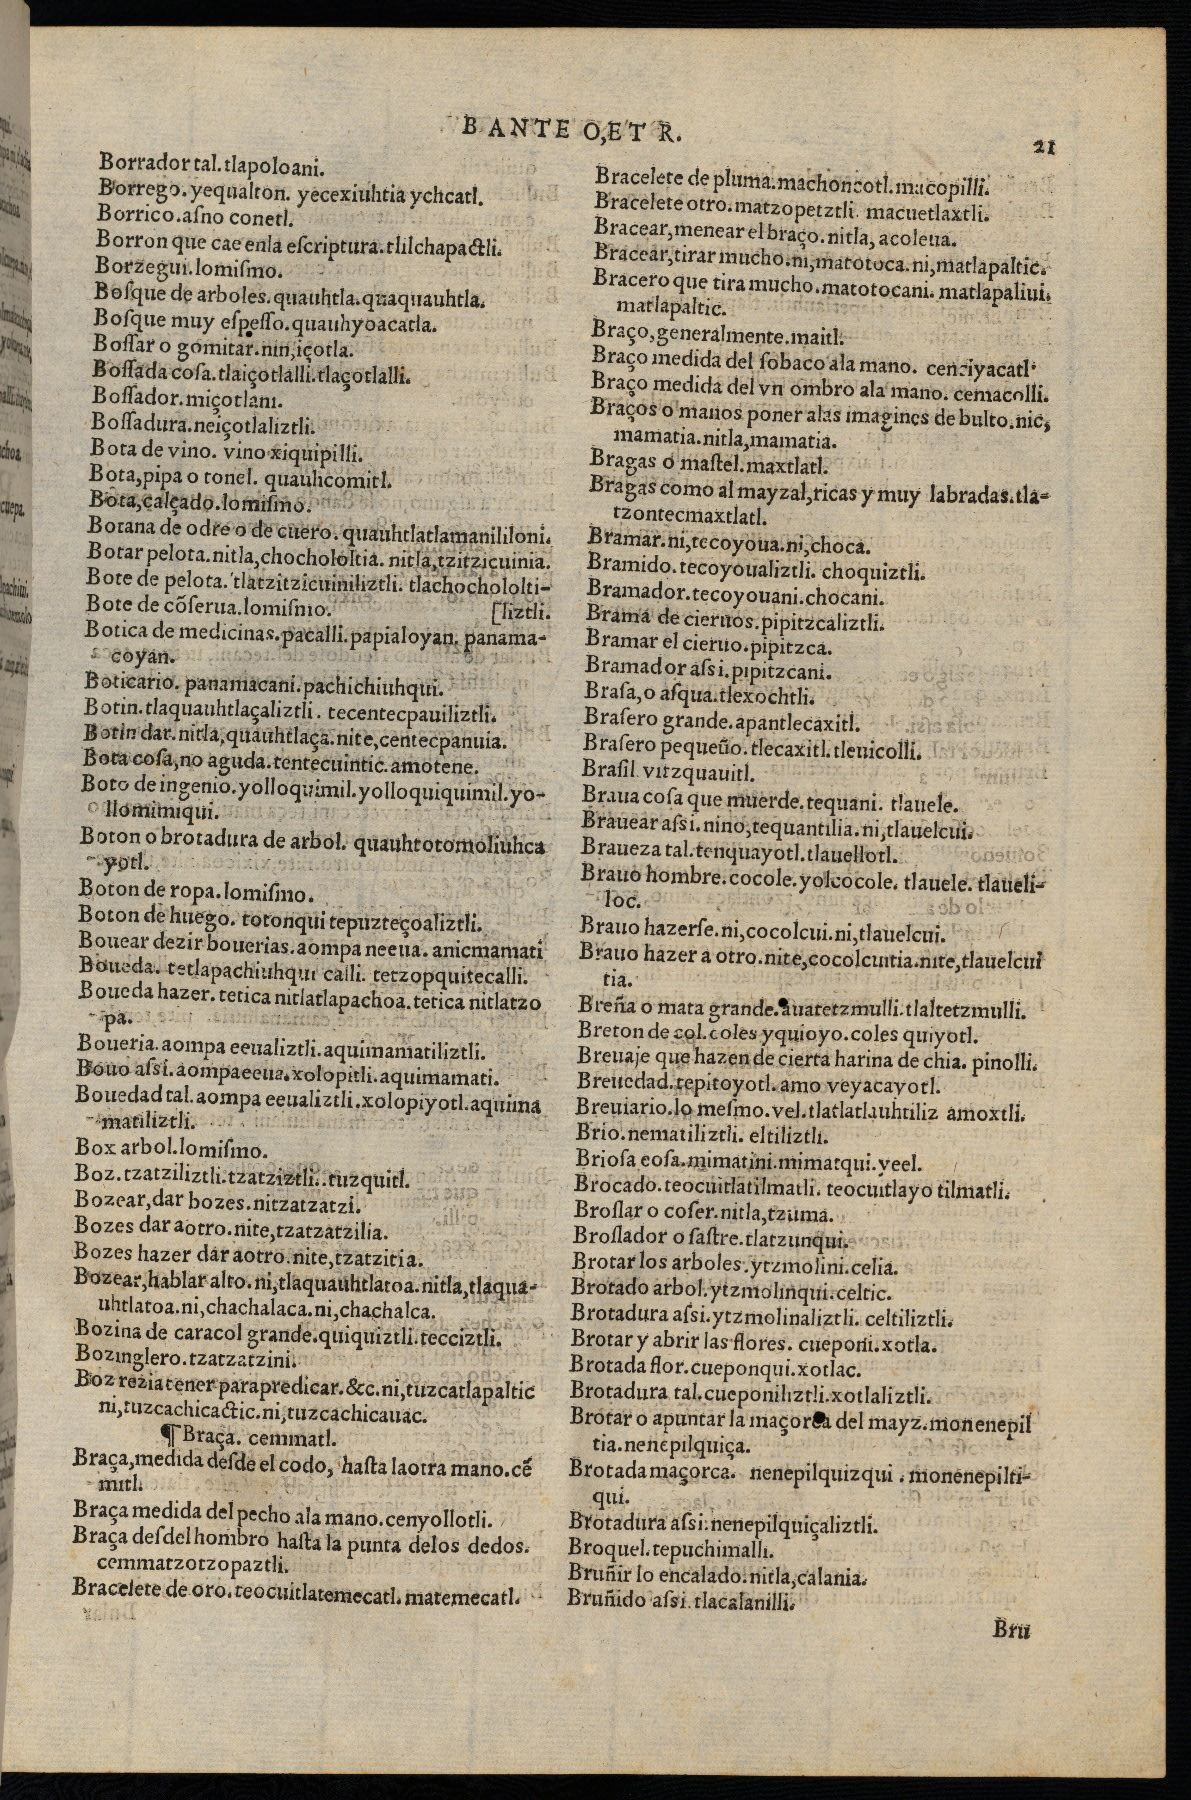 B ANTE O, ET R.
21
Borrador tal. tlapoloani.
Borrego. yequalton. yecexiuhtia ychcatl.
Borrico. asno conetl.
Borron que cae enla escriptura. tlilchapactli.
Borzegui. lo mismo.
Bosque de arboles. quauhtla. quaquauhtla.
Bosque muy espesso. quauhyoacatla.
Bossar o gomitar. nin, içotla.
Bossada cosa. tlaiçotlalli. tlaçotlalli.
Bossador. miçotlani.
Bossadura. neiçotlaliztli.
Bota de vino. vino xiquipilli.
Bota, pipa o tonel. quauhcomitl.
Bota, calçado. lo mismo.
Botana de odre o de cuero. quauhtlatlamanililoni.
Botar pelota. nitla, chochololtia. nitla, tzitzicuinia.
Bote de pelota. tlatzitzicuiniliztli. tlachochololti-
Bote de cõserua. lo mismo. [liztli.
Botica de medicinas. pacalli. papialoyan. panama-
coyan.
Boticario. panamacani. pachichiuhqui.
Botin. tlaquauhtlaçaliztli. tecentecpauiliztli.
Botin dar. nitla, quauhtlaça. nite, centecpanuia.
Bota cosa, no aguda. tentecuintic. amotene.
Boto de ingenio. yolloquimil. yolloquiquimil. yo-
llomimiqui.
Boton o brotadura de arbol. quauhtotomoliuhca
yotl.
Boton de ropa. lo mismo.
Boton de huego. totonqui tepuzteçoaliztli.
Bouear dezir bouerias. aompa neeua. anicmamati
Boueda. tetlapachiuhqui calli. tetzopquitecalli.
Boueda hazer. tetica nitlatlapachoa. tetica nitlatzo
pa.
Boueria. aompa eeualiztli. aquimamatiliztli.
Bouo assi. aompaeeua. xolopitli. aquimamati.
Bouedad tal. aompa eeualiztli. xolopiyotl. aquima
matiliztli.
Box arbol. lo mismo.
Boz. tzatziliztli. tzatziztli. tuzquitl.
Bozear, dar bozes. nitzatzatzi.
Bozes dar aotro. nite, tzatzatzilia.
Bozes hazer dar aotro. nite, tzatzitia.
Bozear, hablar alto. ni, tlaquauhtlatoa. nitla, tlaqua-
uhtlatoa. ni, chachalaca. ni, chachalca.
Bozina de caracol grande. quiquiztli. tecciztli.
Bozinglero. tzatzatzini.
Boz rezia tener para predicar. &c. ni, tuzcatlapaltic
ni, tuzcachicactic. ni, tuzcachicauac.
¶ Braça. cemmatl.
Braça, medida desde el codo, hasta la otra mano. cẽ
mitl.
Braça medida del pecho ala mano. cenyollotli.
Braça desdel hombro hasta la punta delos dedos.
cemmatzotzopaztli.
Bracelete de oro. teocuitlatemecatl. matemecatl.
Bracelete de pluma. machoncotl. macopilli.
Bracelete otro. matzopetztli. macuetlaxtli.
Bracear, menear el braço. nitla, acoleua.
Bracear, tirar mucho. ni, matotoca. ni, matlapaltic.
Bracero que tira mucho. matotocani. matlapaliui.
matlapaltic.
Braço, generalmente. maitl.
Braço medida del sobaco ala mano. cenciyacatl.
Braço medida del vn ombro ala mano. cemacolli.
Braços o manos poner alas imagines de bulto. nic,
mamatia. nitla, mamatia.
Bragas o mastel. maxtlatl.
Bragas como almayzal, ricas y muy labradas. tla-
tzontecmaxtlatl.
Bramar. ni, tecoyoua. ni, choca.
Bramido. tecoyoualiztli. choquiztli.
Bramador. tecoyouani. chocani.
Brama de cieruos. pipitzcaliztli.
Bramar el cieruo. pipitzca.
Bramador assi. pipitzcani.
Brasa, o asqua. tlexochtli.
Brasero grande. apantlecaxitl.
Brasero pequeño. tlecaxitl. tleuicolli.
Brasil vitzquauitl.
Braua cosa que muerde. tequani. tlauele.
Brauear assi. nino, tequantilia. ni, tlauelcui.
Braueza tal. tenquayotl. tlauellotl.
Brauo hombre. cocole. yolcocole. tlauele. tlaueli-
loc.
Brauo hazerse. ni, cocolcui. ni, tlauelcui.
Brauo hazer a otro. nite, cocolcuitia. nite, tlauelcui
tia.
Breña o mata grande. auatetzmulli. tlaltetzmulli.
Breton de col. coles yquioyo. coles quiyotl.
Breuaje que hazen de cierta harina de chia. pinolli.
Breuedad. tepitoyotl. amo veyacayotl.
Breuiario. lo mesmo. vel. tlatlatlauhtiliz amoxtli.
Brio. nematiliztli. eltiliztli.
Briosa cosa. mimatini. mimatqui. yeel.
Brocado. teocuitlatilmatli. teocuitlayo tilmatli.
Broslar o coser. nitla, tzuma.
Broslador o sastre. tlatzunqui.
Brotar los arboles. ytzmolini. celia.
Brotado arbol. ytzmolinqui. celtic.
Brotadura assi. ytzmolinaliztli. celtiliztli.
Brotar y abrir las flores. cueponi. xotla.
Brotada flor. cueponqui. xotlac.
Brotadura tal. cueponiliztli. xotlaliztli.
Brotar o apuntar la maçorca del mayz. monenepil
tia. nenepilquiça.
Brotada maçorca. nenepilquizqui. monenepilti-
qui.
Brotadura assi. nenepilquiçaliztli.
Broquel. tepuchimalli.
Bruñir lo encalado. nitla, calania.
Bruñido assi. tlacalanilli.
Bru